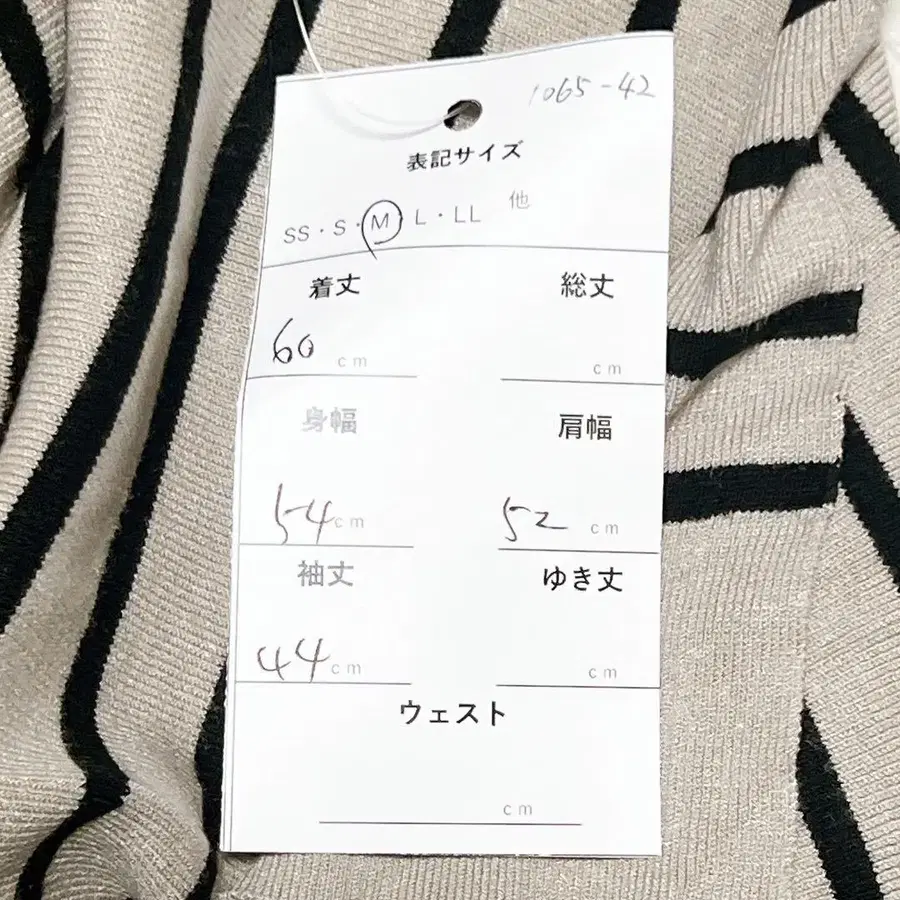 1065-42
表記サイズ
SS・S・M・L・LL 他
着丈 総丈
60 cm cm
身幅 肩幅
54 cm 52 cm
袖丈 ゆき丈
44 cm cm
ウェスト
cm